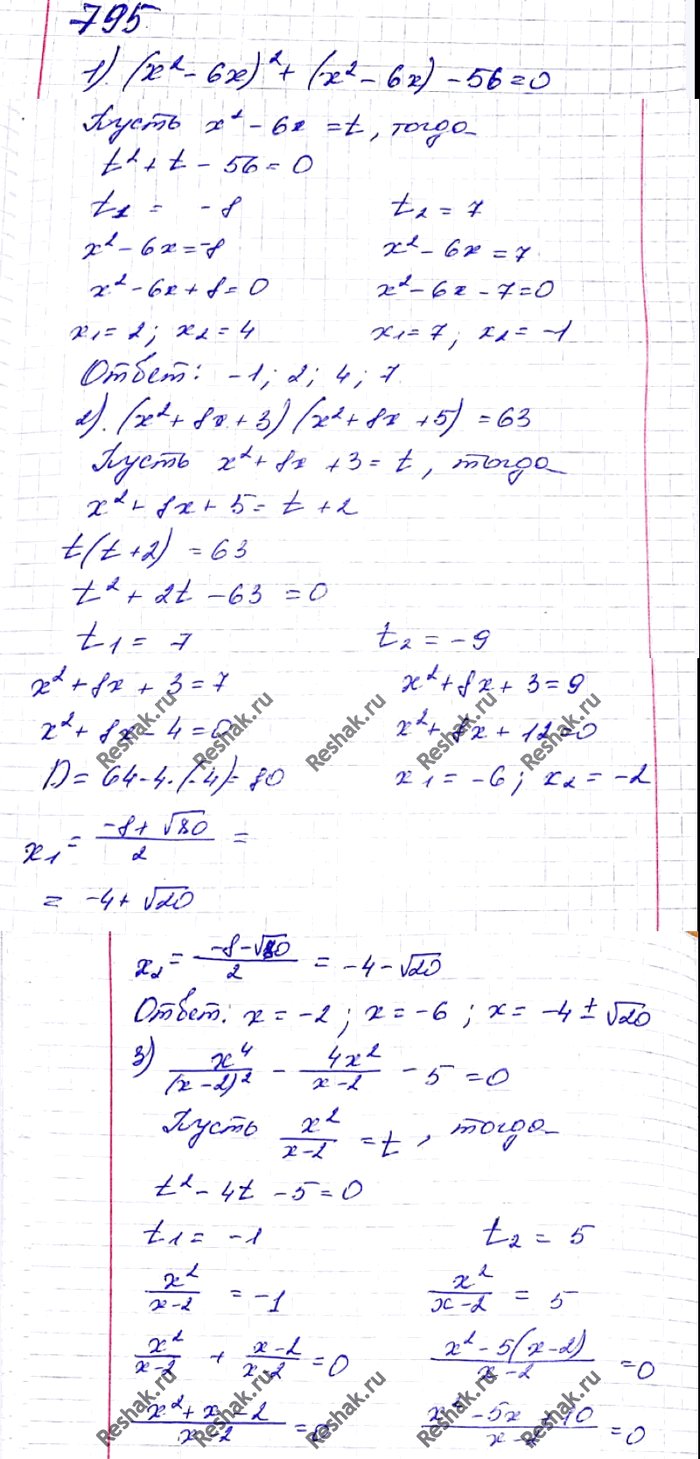 795
1). (x² - 6x)² + (x² - 6x) - 56 = 0
Пусть x² - 6x = t, тогда
t² + t - 56 = 0
t₁ = -8 t₂ = 7
x² - 6x = -8 x² - 6x = 7
x² - 6x + 8 = 0 x² - 6x - 7 = 0
x₁ = 2; x₂ = 4 x₁ = 7; x₂ = -1
Ответ: -1; 2; 4; 7
2). (x² + 8x + 3)(x² + 8x + 5) = 63
Пусть x² + 8x + 3 = t, тогда
x² + 8x + 5 = t + 2
t(t + 2) = 63
t² + 2t - 63 = 0
t₁ = 7 t₂ = -9
x² + 8x + 3 = 7 x² + 8x + 3 = 9
x² + 8x - 4 = 0 x² + 8x + 12 = 0
D = 64 - 4·(-4) = 80 x₁ = -6; x₂ = -2
x₁ = (-8 + √80)/2 =
= -4 + √20
x₂ = (-8 - √80)/2 = -4 - √20
Ответ: x = -2; x = -6; x = -4 ± √20
3) x⁴/(x - 2)² - 4x²/(x - 2) - 5 = 0
Пусть x²/(x - 2) = t, тогда
t² - 4t - 5 = 0
t₁ = -1 t₂ = 5
x²/(x - 2) = -1 x²/(x - 2) = 5
x²/(x - 2) + (x - 2)/(x - 2) = 0 (x² - 5(x - 2))/(x - 2) = 0
(x² + x - 2)/(x - 2) = 0 (x² - 5x + 10)/(x - 2) = 0
Reshak.ru Reshak.ru Reshak.ru Reshak.ru Reshak.ru
Reshak.ru Reshak.ru Reshak.ru Reshak.ru Reshak.ru